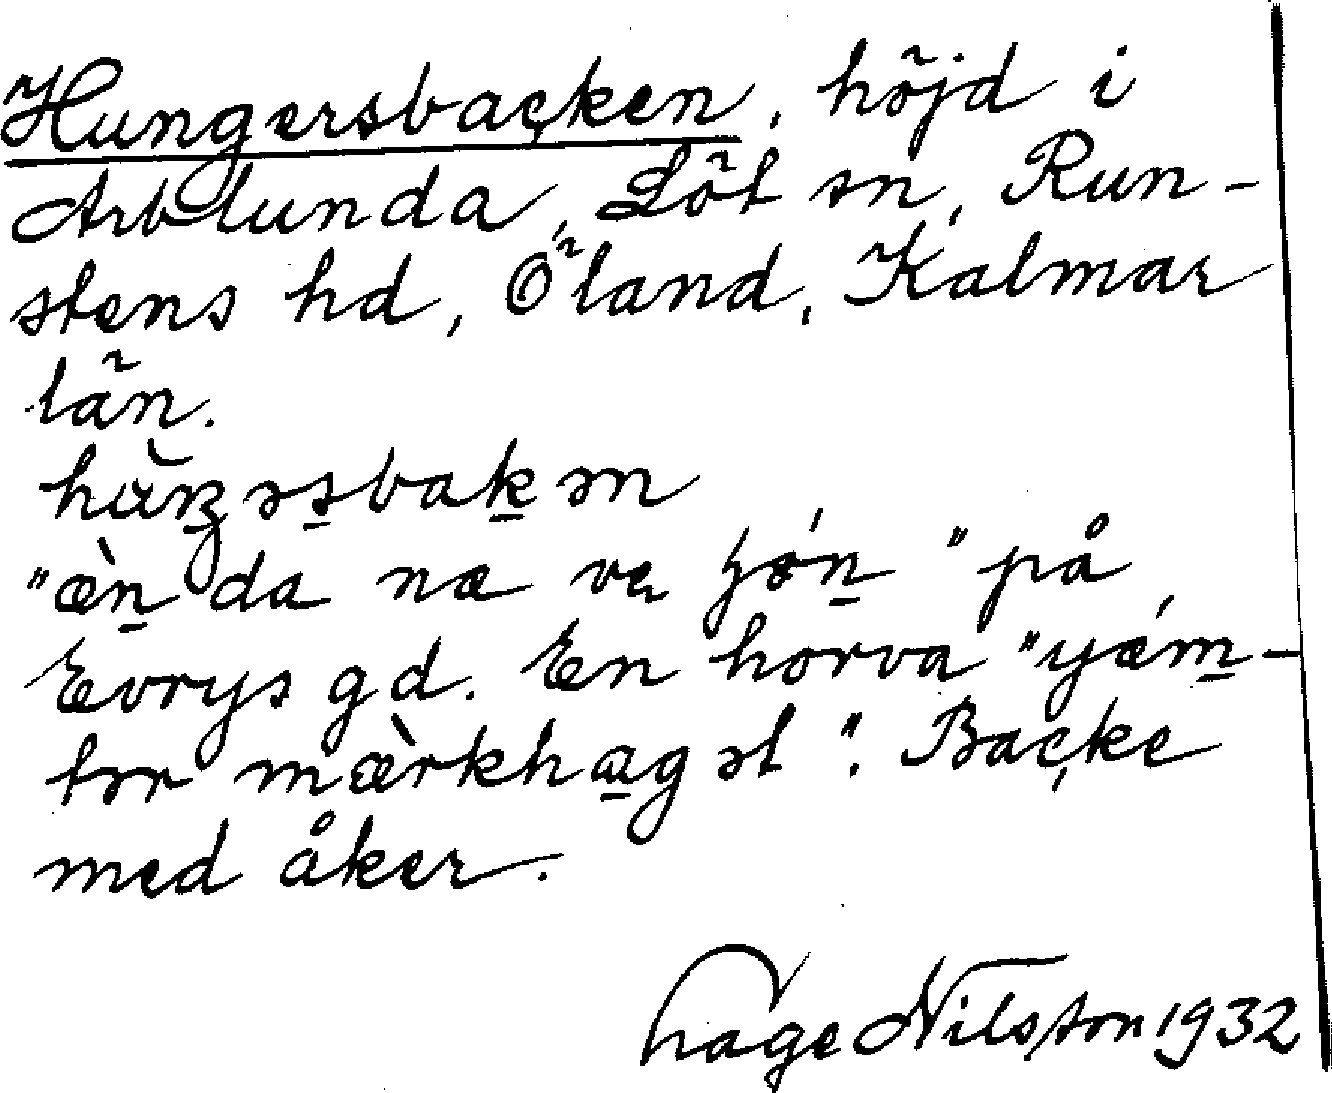 Hungersbacken, höjd i
Arbelunda, Löt sn, Run-
stens hd, Öland, Kalmar
län.
"æ̀n da næ va
på
Evrys gd. En horva "yǽm-
tər mærkhagət". Backe
med åker.
Hage Nilsson 1932